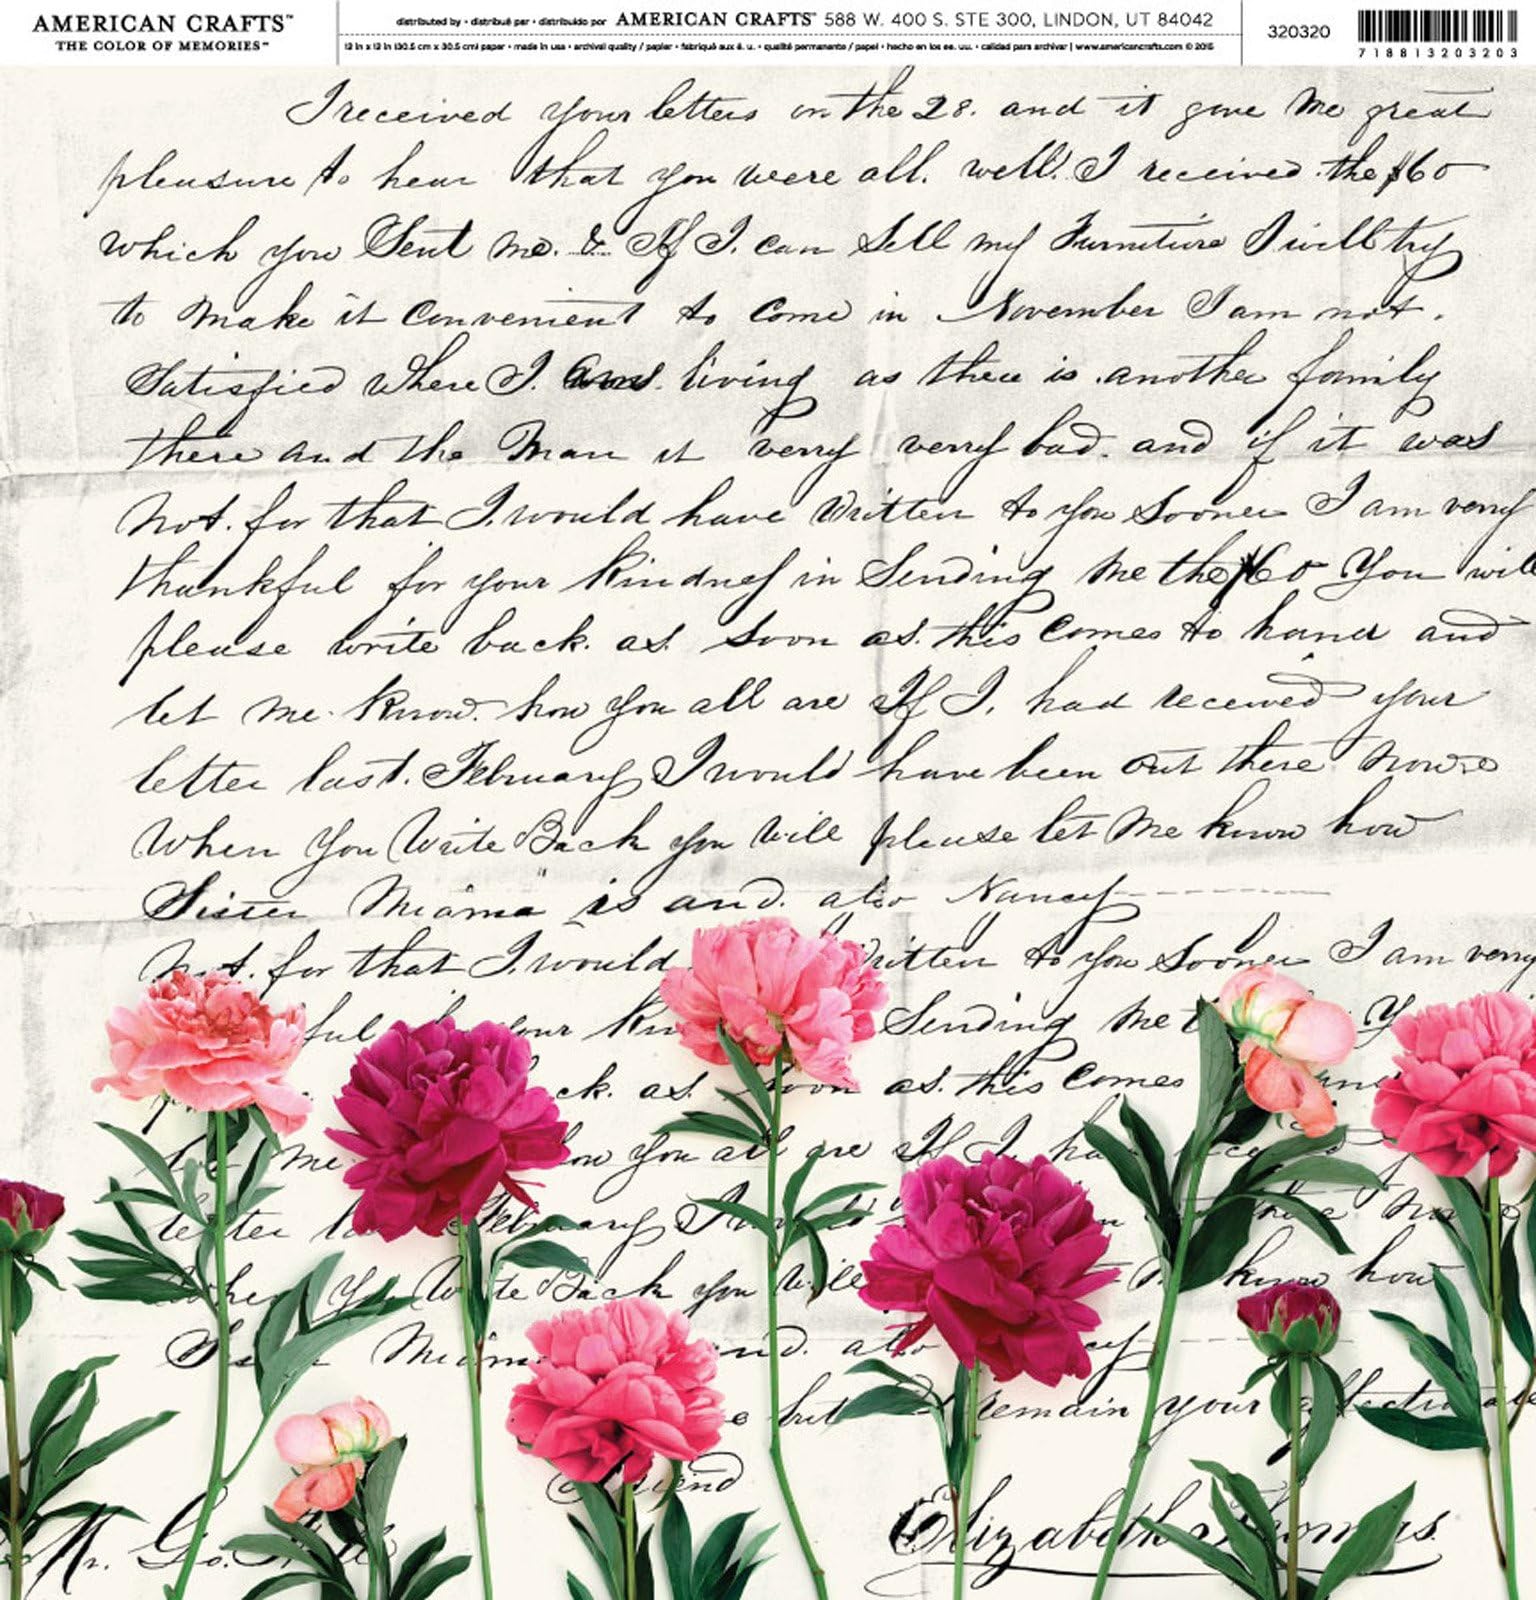 AMERICAN CRAFTS™
THE COLOR OF MEMORIES™
distributed by • distribué par • distribuido por AMERICAN CRAFTS™ 588 W. 400 S. STE 300, LINDON, UT 84042
12 in x 12 in (30.5 cm x 30.5 cm) paper • made in usa • archival quality / papier • fabriqué aux é. u. • qualité permanente / papel • hecho en los ee. uu. • calidad para archivar | www.americancrafts.com © 2015
320320
718813203203
I received your letters on the 28. and it gave me great
pleasure to hear that you were all. well. I received the $60
which you Sent me. & If I. can Sell my Furniture I will try
to make it convenient to come in November I am not.
Satisfied where I. am living as there is another family
there and the Man it verry verry bad. and if it was
Not. for that I. would have Written to you Sooner I am verry
thankful for your kindness in Sending me the $60 You will
please write back. as. soon as. this comes to hand and
let me know. how you all are If I. had received your
letter last. February I would have been out there now
When you Write Back you will please let me know how
Sister is and. also Nancy
Not. for that I. would ritten to you Sooner I am verry
ful our Kin Sending me t Y
ck. as. soon as. this comes and
me ow you all are If I. ha ce
letter la February I would there now
Whe Yo Write Back you will know how
Sis nd. also cy
e but remain your affectionate
Friend
Mr. Geo.
Elizabeth Thomas.